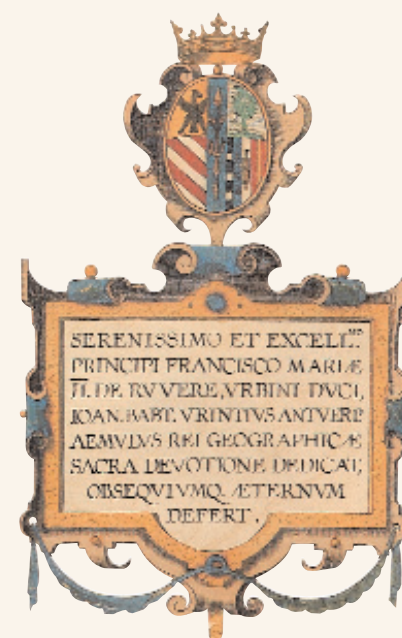 SERENISSIMO ET EXCELL.MO
PRINCIPI FRANCISCO MARIÆ
II. DE RVVERE, VRBINI DVCI,
IOAN. BAPT. VRINTIVS ANTVERP.
AEMVLVS REI GEOGRAPHICÆ
SACRA DEVOTIONE DEDICAT,
OBSEQVIVMQ. ÆTERNVM
DEFERT.